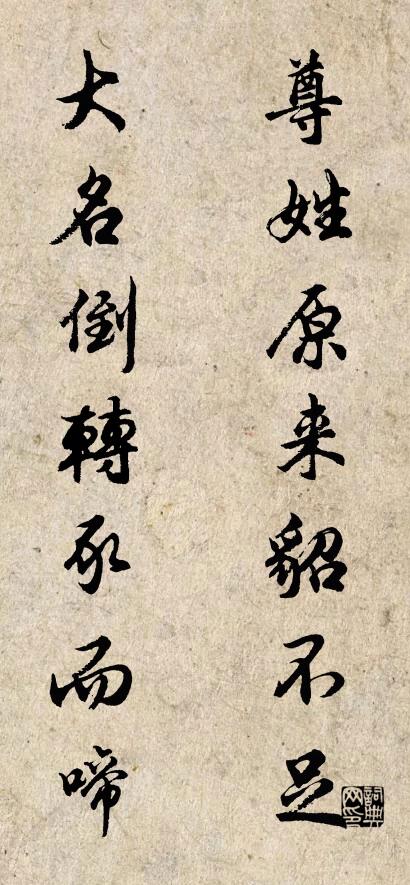 尊姓原来貂不足
大名倒轉豕而啼
詞典
网印